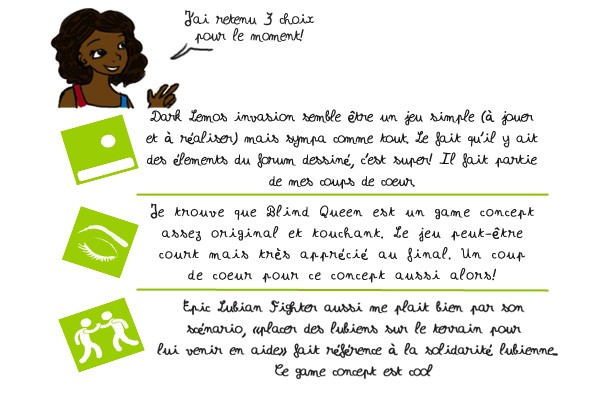 J'ai retenu 3 choix
pour le moment!
Dark Lemos invasion semble être un jeu simple (à jouer
et à réaliser) mais sympa comme tout. Le fait qu'il y ait
des élements du forum dessiné, c'est super! Il fait partie
de mes coups de coeur
Je trouve que Blind Queen est un game concept
assez original et touchant. Le jeu peut-être
court mais très apprécié au final. Un coup
de coeur pour ce concept aussi alors!
Epic Lubian Fighter aussi me plait bien par son
scénario, «placer des lubiens sur le terrain pour
lui venir en aide» fait référence à la solidarité lubienne...
Ce game concept est cool